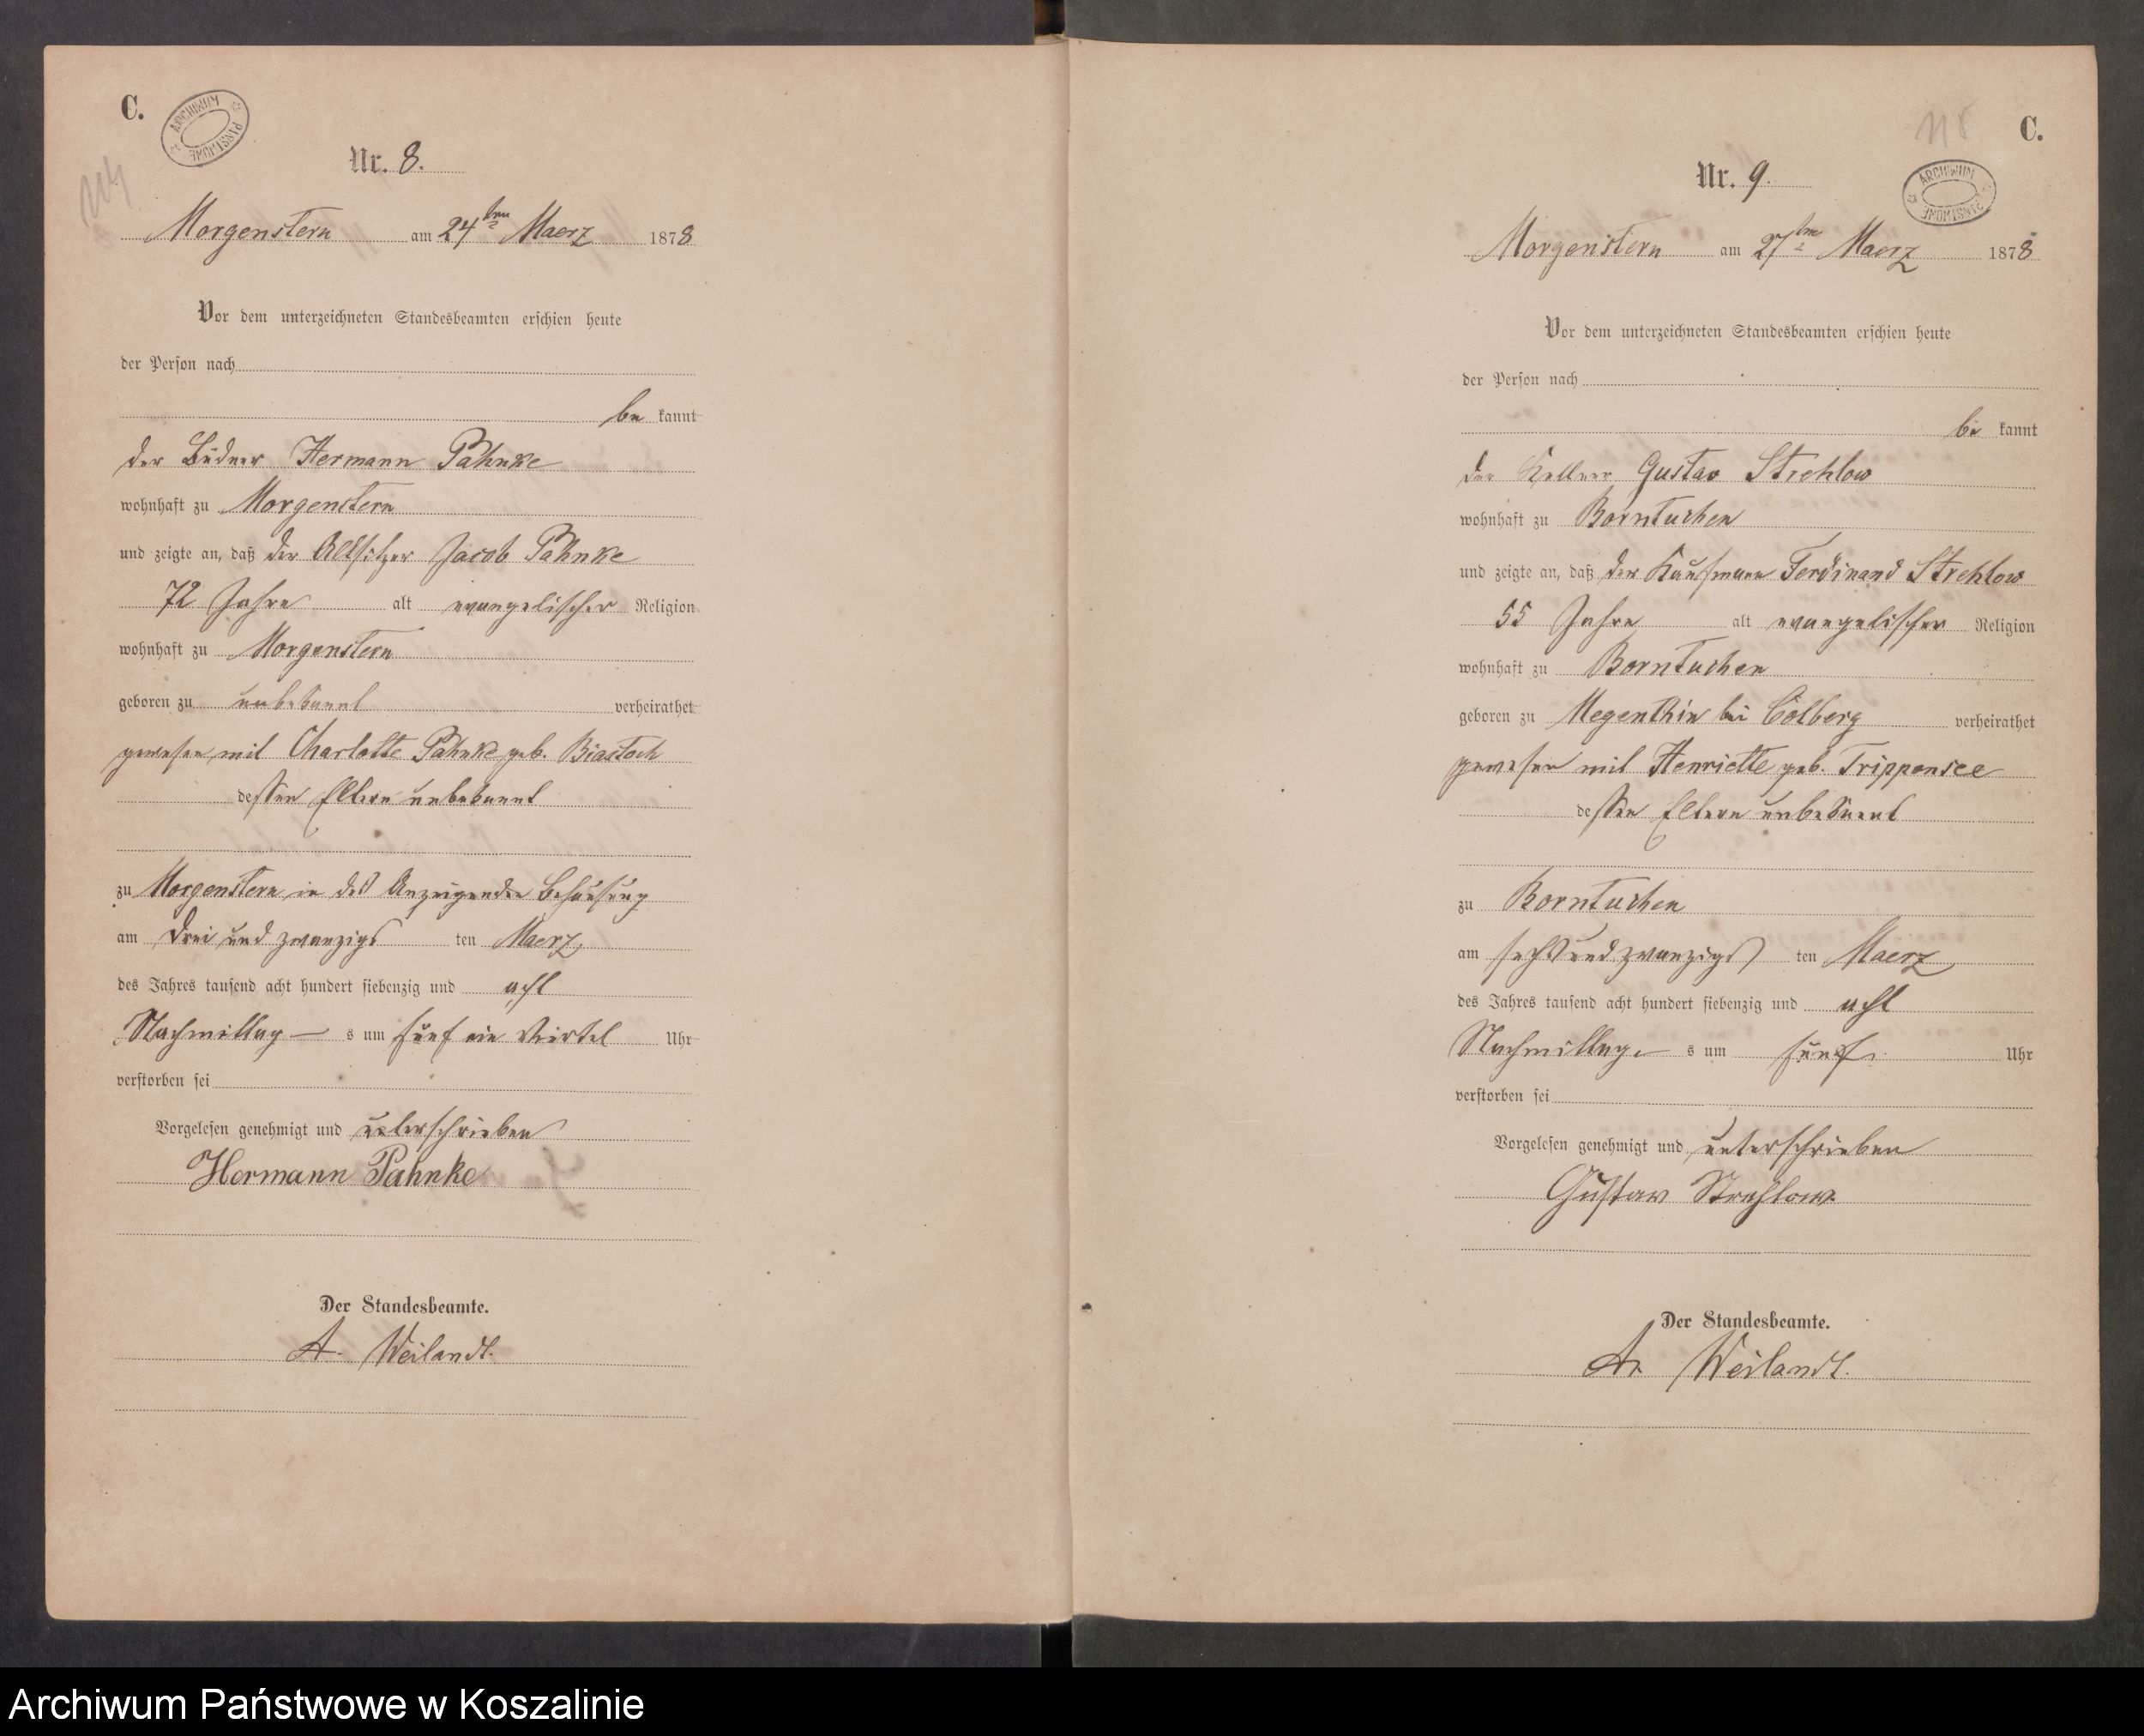 C.
ARCHIWUM PAŃSTWOWE
Nr. 8.
Morgenstern am 24ten Maerz 1878
Vor dem unterzeichneten Standesbeamten erschien heute
der Person nach
be kannt
der Büdner Hermann Pahnke
wohnhaft zu Morgenstern
und zeigte an, daß der Altsitzer Jacob Pahnke
72 Jahre alt evangelischer Religion
wohnhaft zu Morgenstern
geboren zu unbekannt verheirathet
gewesen mit Charlotte Pahnke geb. Biastoch
dessen Eltern unbekannt
zu Morgenstern in des Anzeigenden Behausung
am drei und zwanzigs ten Maerz
des Jahres tausend acht hundert siebenzig und acht
Nachmittag s um fünf ein Viertel Uhr
verstorben sei
Vorgelesen genehmigt und unterschrieben
Hermann Pahnke
Der Standesbeamte.
A. Weilandt.
C.
ARCHIWUM PAŃSTWOWE
Nr. 9.
Morgenstern am 27ten Maerz 1878
Vor dem unterzeichneten Standesbeamten erschien heute
der Person nach
be kannt
der Kellner Gustav Strehlow
wohnhaft zu Borntuchen
und zeigte an, daß der Kaufmann Ferdinand Strehlow
55 Jahre alt evangelischer Religion
wohnhaft zu Borntuchen
geboren zu Megenthin bei Colberg verheirathet
gewesen mit Henriette geb. Trippensee
dessen Eltern unbekannt
zu Borntuchen
am sechsundzwanzigs ten Maerz
des Jahres tausend acht hundert siebenzig und acht
Nachmittag s um fünf Uhr
verstorben sei
Vorgelesen genehmigt und unterschrieben
Gustav Strehlow
Der Standesbeamte.
A. Weilandt.
Archiwum Państwowe w Koszalinie